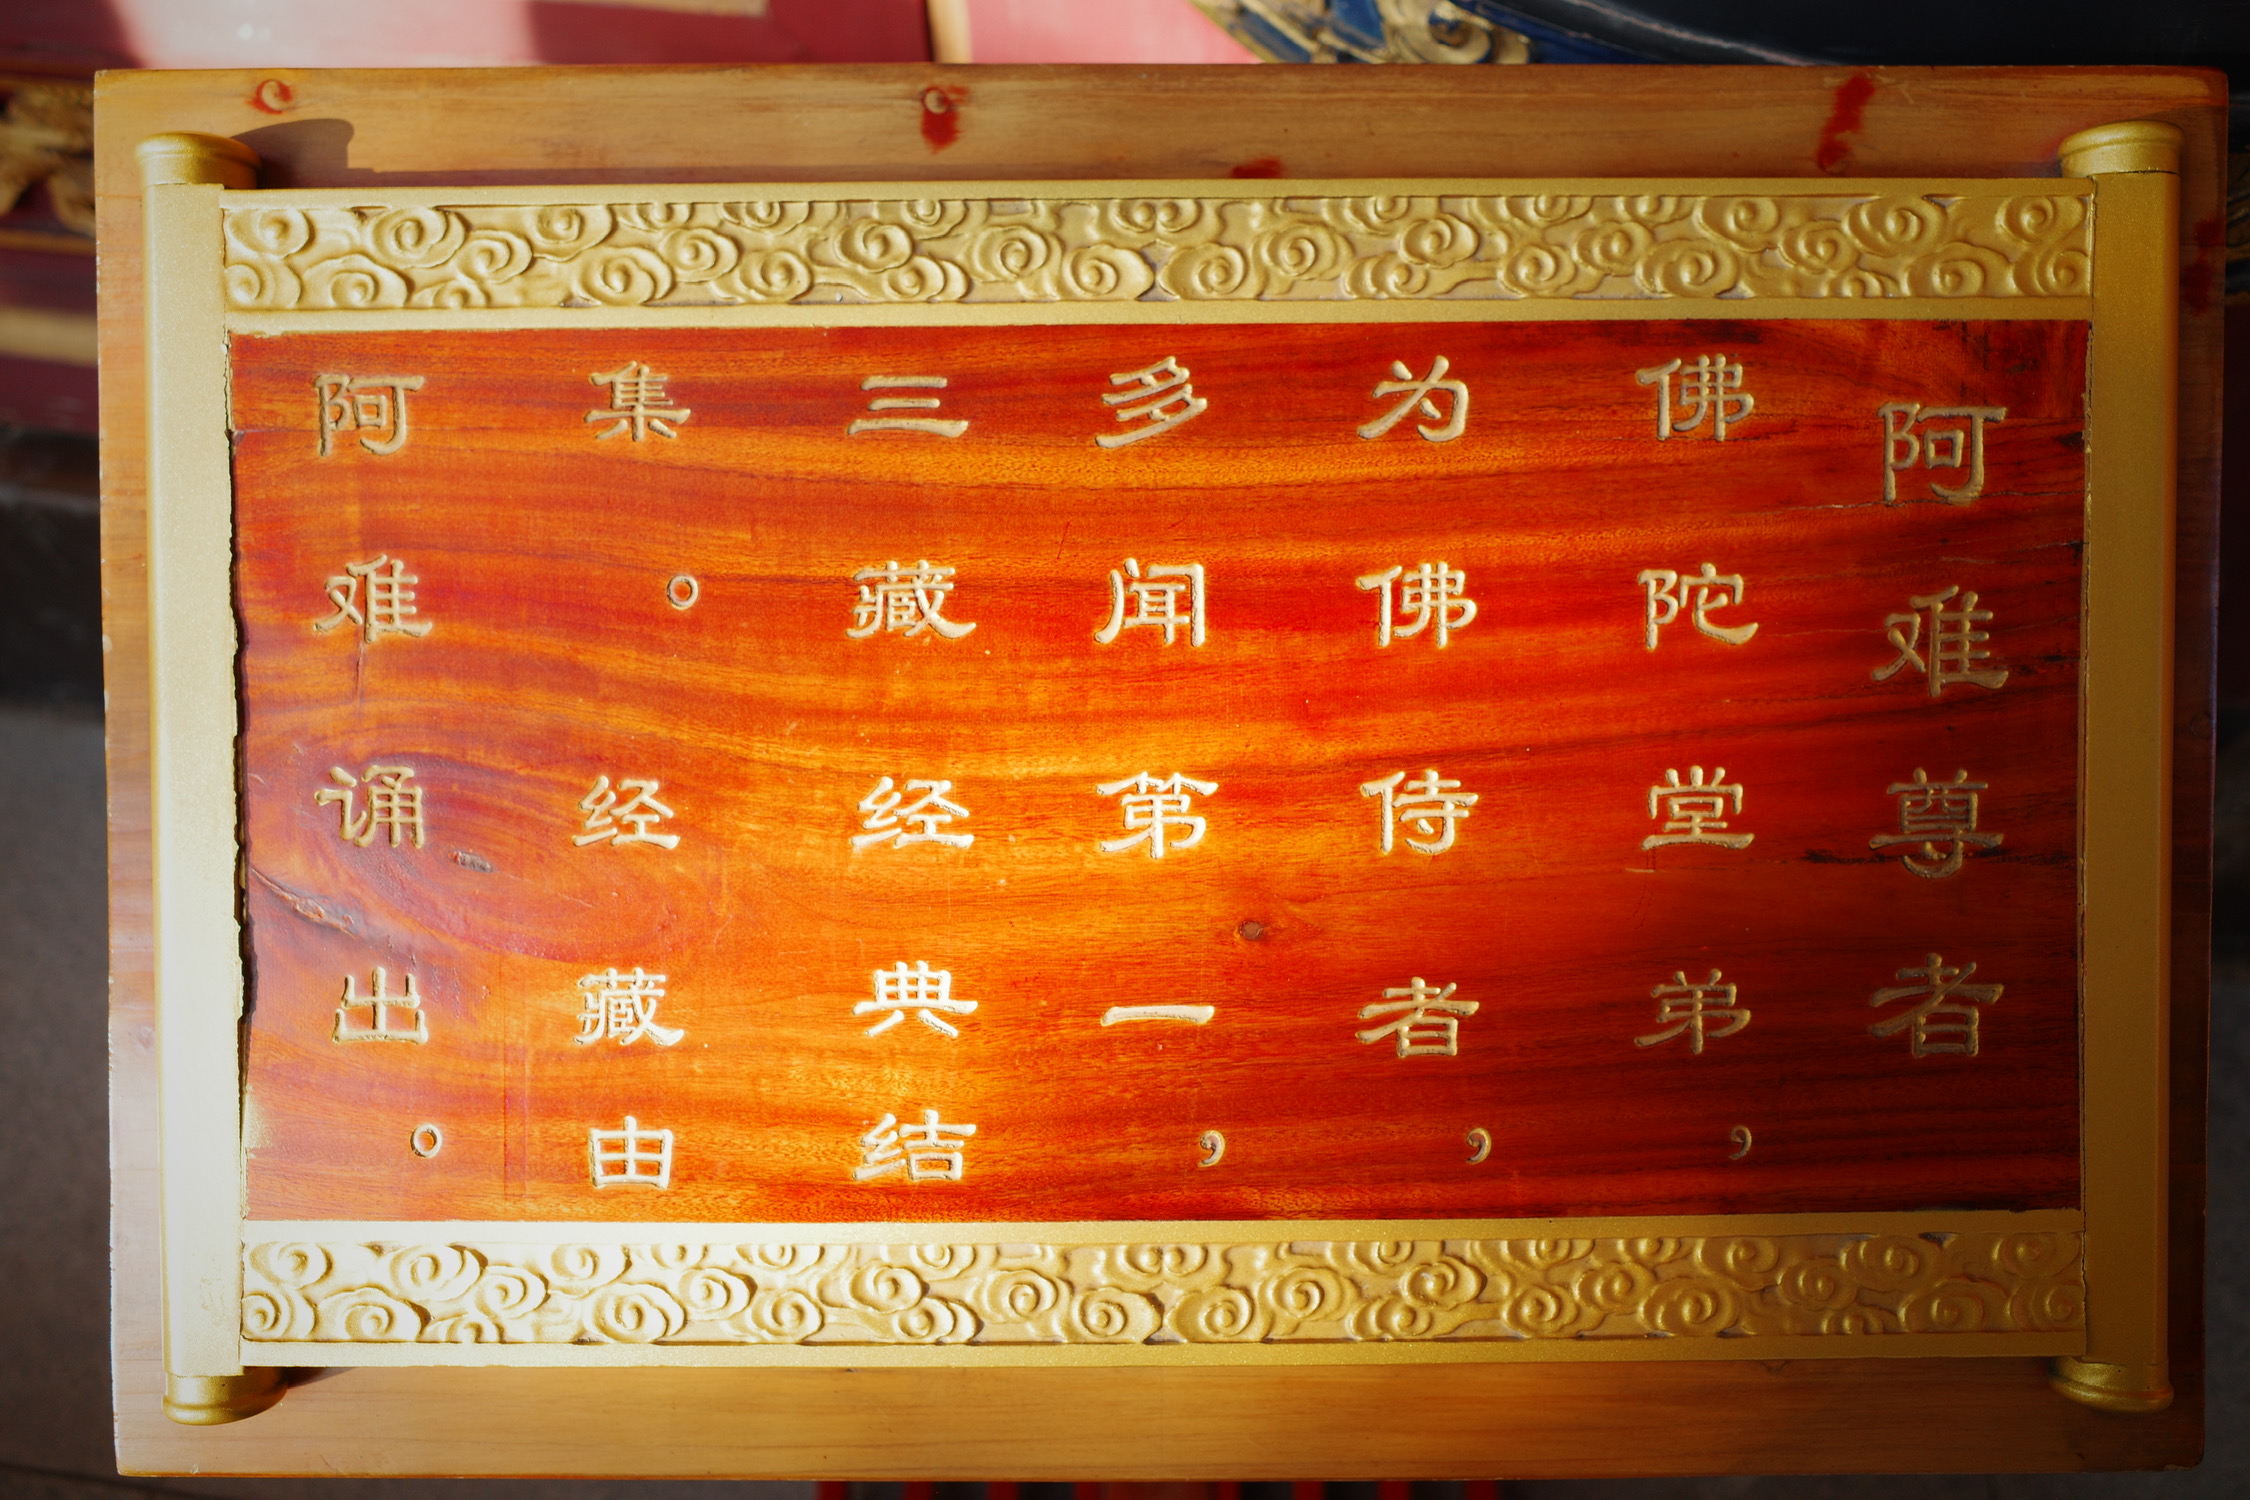 阿难尊者
佛陀堂弟，
为佛侍者，
多闻第一，
三藏经典结
集。经藏由
阿难诵出。